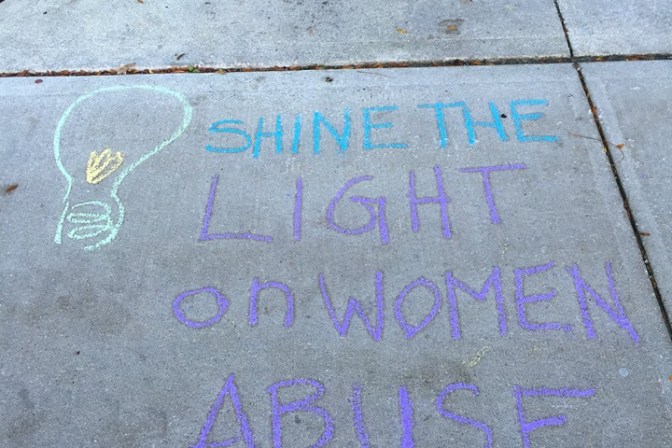 SHINE THE
LIGHT
on WOMEN
ABUSE